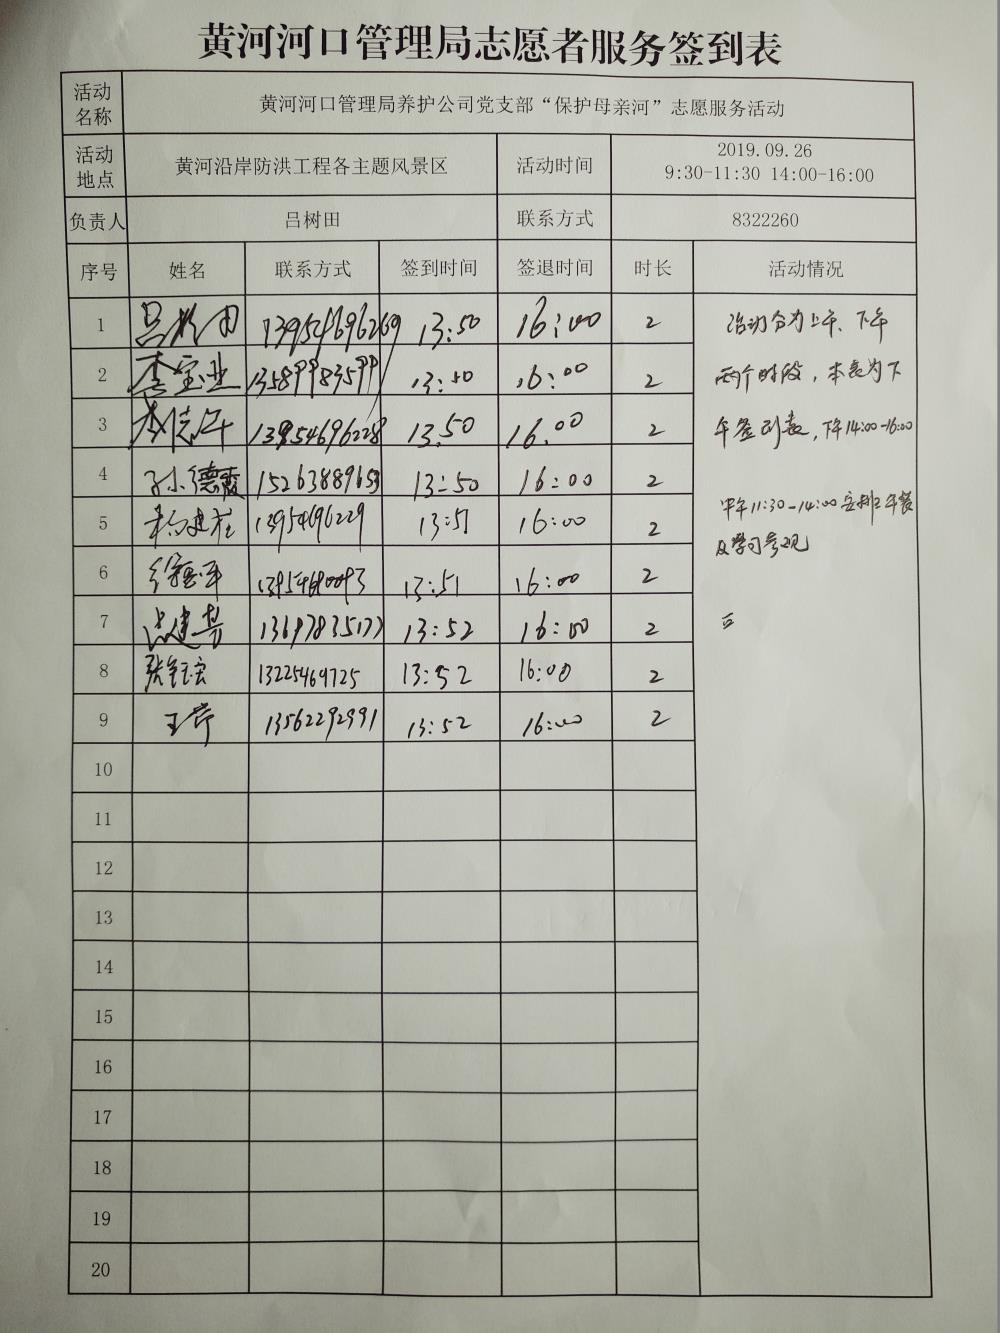 黄河河口管理局志愿者服务签到表
活动名称 黄河河口管理局养护公司党支部“保护母亲河”志愿服务活动
活动地点 黄河沿岸防洪工程各主题风景区 活动时间 2019.09.26 9:30-11:30 14:00-16:00
负责人 吕树田 联系方式 8322260
序号 姓名 联系方式 签到时间 签退时间 时长 活动情况
1 吕树田 13954696269 13:50 16:00 2 活动分为上午、下午
2 李宝业 13589983599 13:50 16:00 2 两个时段，本表为下
3 13954696228 13.50 16.00 2 午签到表，下午14:00-16:00
4 孙德霞 15263889653 13:50 16:00 2
中午11:30-14:00安排午餐
5 13954696229 13:51 16:00 2
及学习参观
6 13:51 16:00 2
7 13697835177 13:52 16:00 2
8 13225469725 13:52 16:00 2
9 王芹 13562292991 13:52 16:00 2
10
11
12
13
14
15
16
17
18
19
20